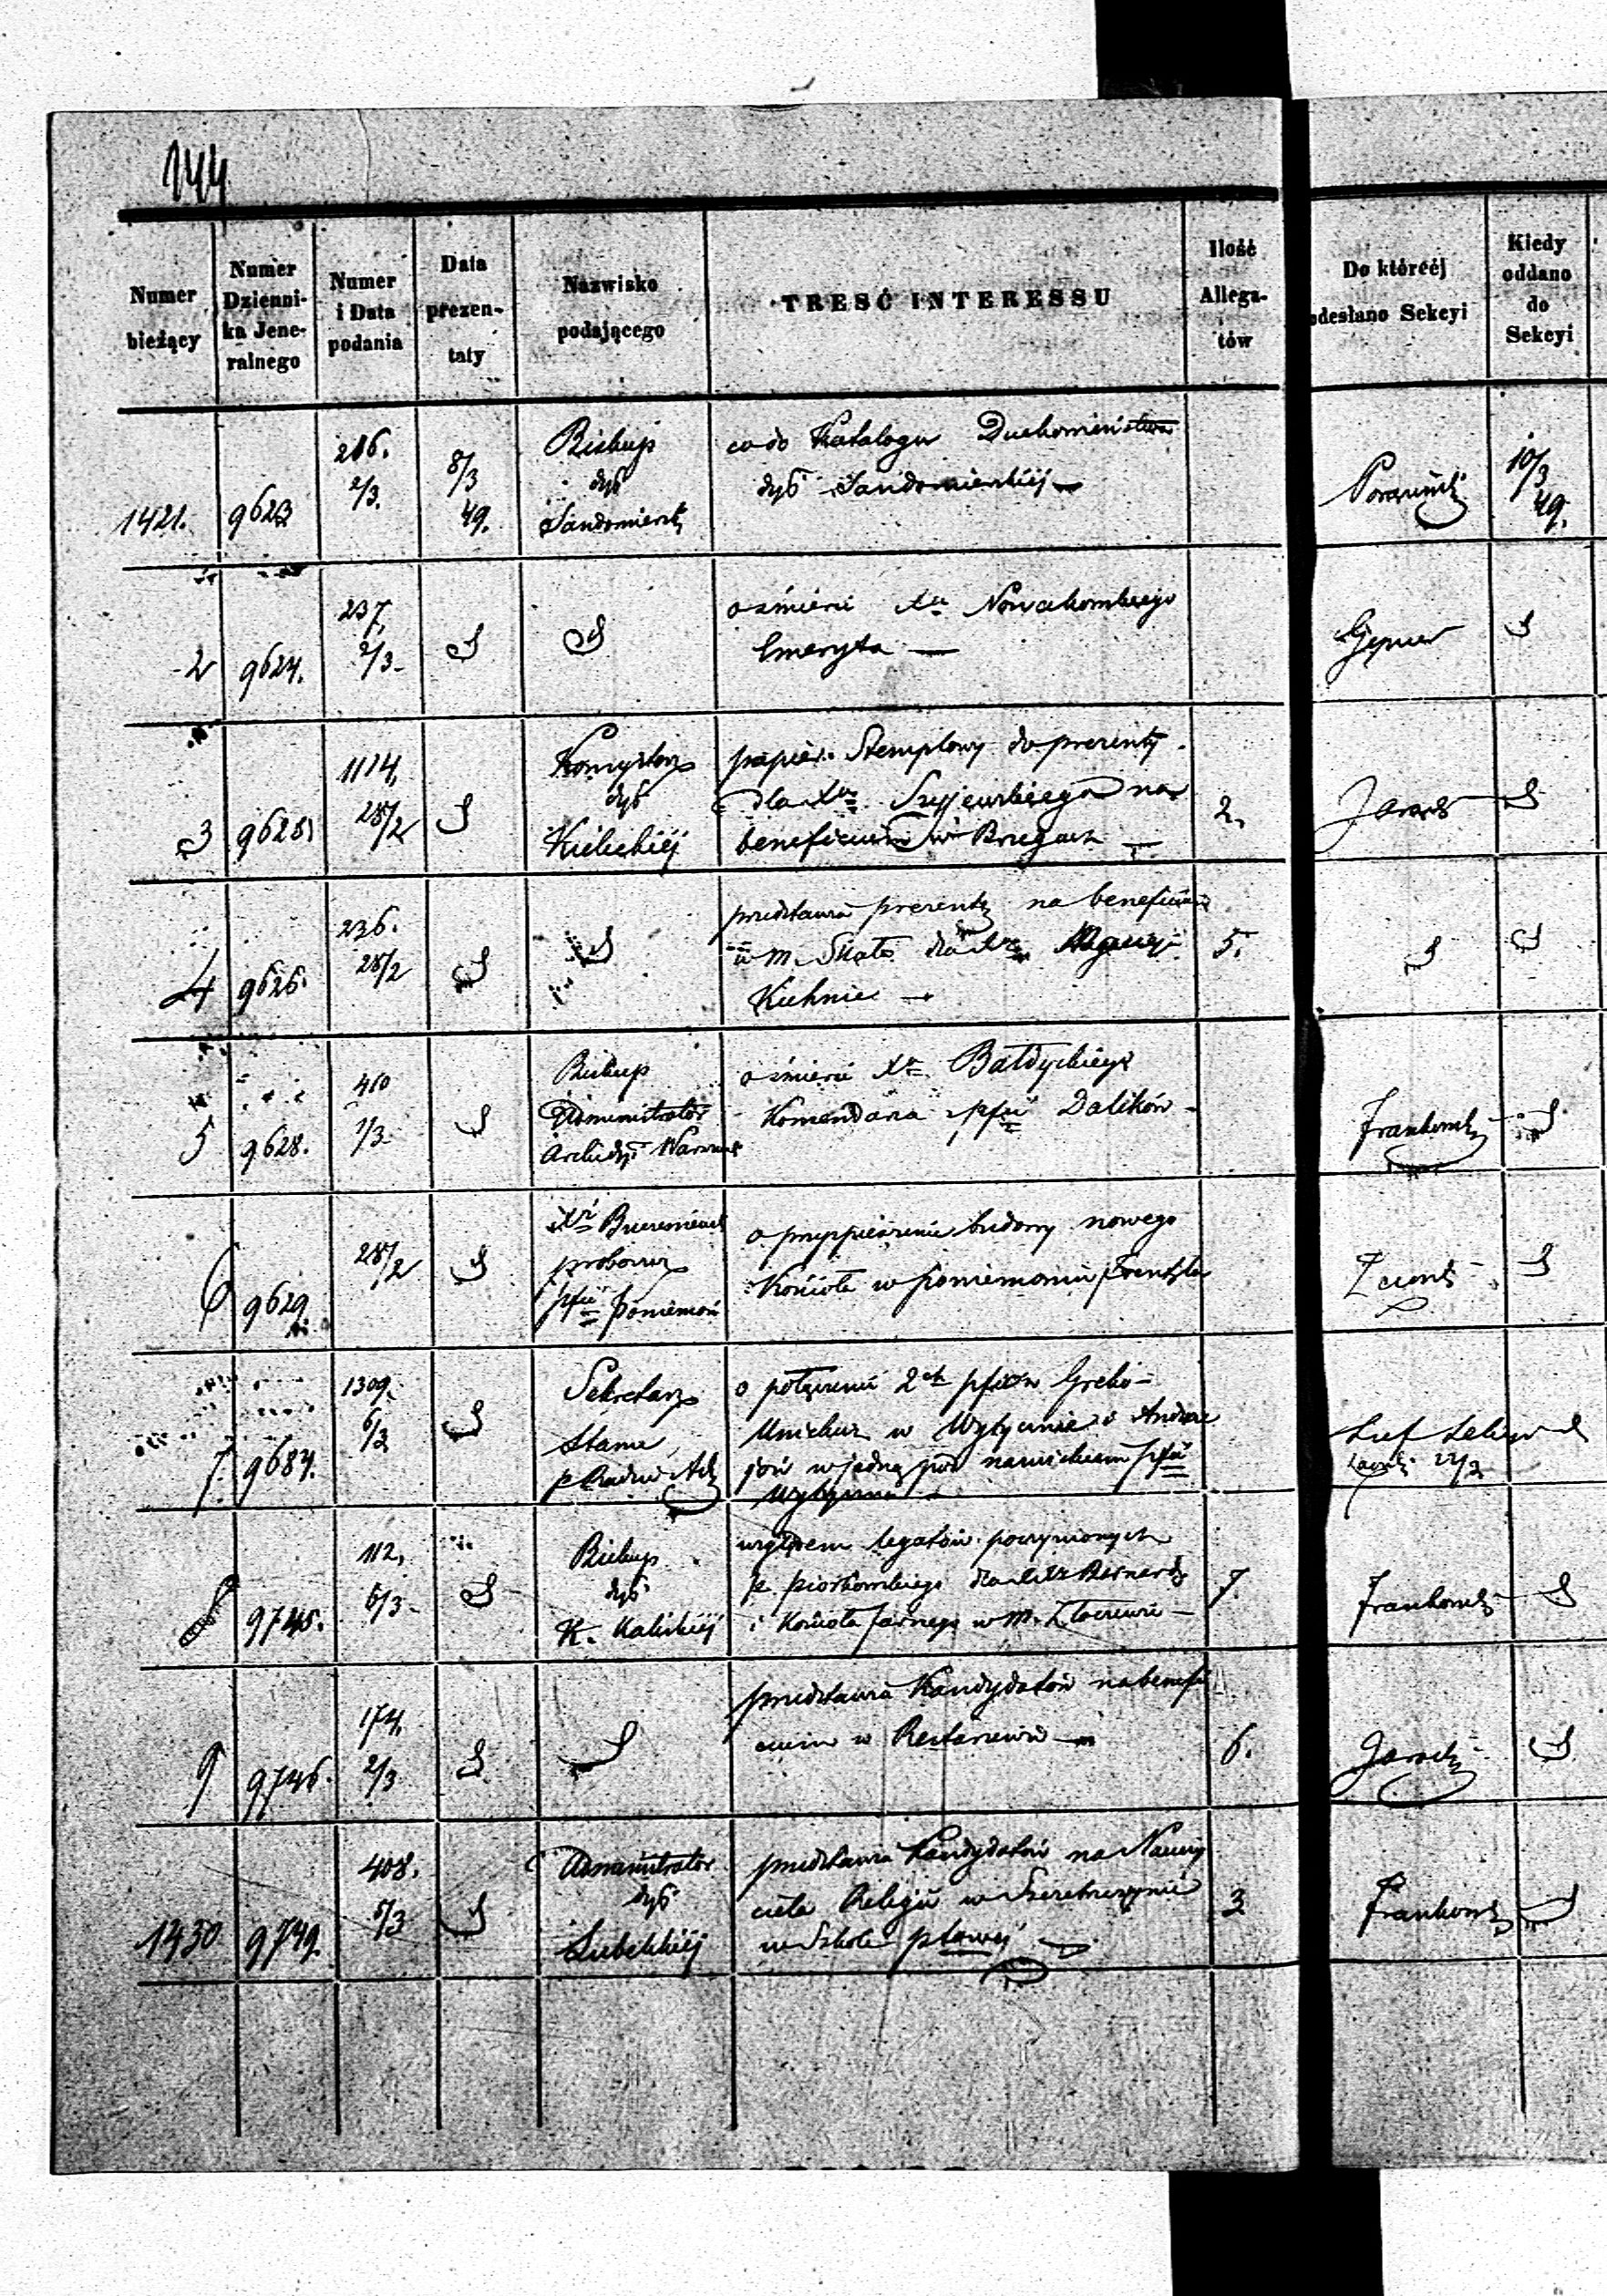 144
Numer bieżący
Numer Dzienni- ka Jene- ralnego
Numer i Data podania
Data prezen- taty
Nazwisko podającego
TREŚĆ INTERESSU
Ilość Allega- tów
Do któréej odesłano Sekcyi
Kiedy oddano do Sekcyi
1421.
9623
216.
2/3.
8/3
49.
Biskup
dyś
Sandomiersk
co do Katalogu Duchowieństwa
dyś Sandomierskiéj —
10/3
49.
2
9624.
237,
2/3
o śmierci Xa Nowakowskiego
Emeryta —
3
9625.
1114,
28/2
Konsystorz
dyś
Kieleckiéj
papier Stemplowy do prezenty
dla Xa na
beneficium w Brzegach —
2.
4
9626.
236.
28/2
przedstawia prezentę na beneficium
w m. Skała dla
Kuchnie —
5.
5
9628.
410
1/3
Biskup
Administrator
Archidyi Warszaws
o śmierci Xa Bałdyckiego
Komendarza pfii Dalików
Frankowsk
6
9629
28/2
proboszcz
pfii Poniemoń
o przyspieszenie budowy nowego
Kościoła w Poniemoniu
7.
9684.
1309.
6/3
Sekretarz
Stanu
p Radzie Ad
o połączeniu 2ch pfiów Grecko-
Unickich w Wytycznie i Andrze
jów w jedną pod nazwiskiem pfii
Wytyczna
22/3
8
9745.
112,
6/3
Biskup
dyś
K. Kaliskiéj
względem legatów poczynionych
p. Piorkowskiego dla XX Bernard
i Kościoła farnego w m. Złoczewie —
7
Frankowsk
9
9746.
174.
2/3
przedstawia Kandydatów na benefi
cium w Restarzewie —
6.
1430
9749.
408.
5/3
Administrator
dyś
Lubelskiéj
przedstawia Kandydatów na Nauczy
ciela Religii w Szczebrzeszynie
w Szkole ptowej
3
Frankowsk